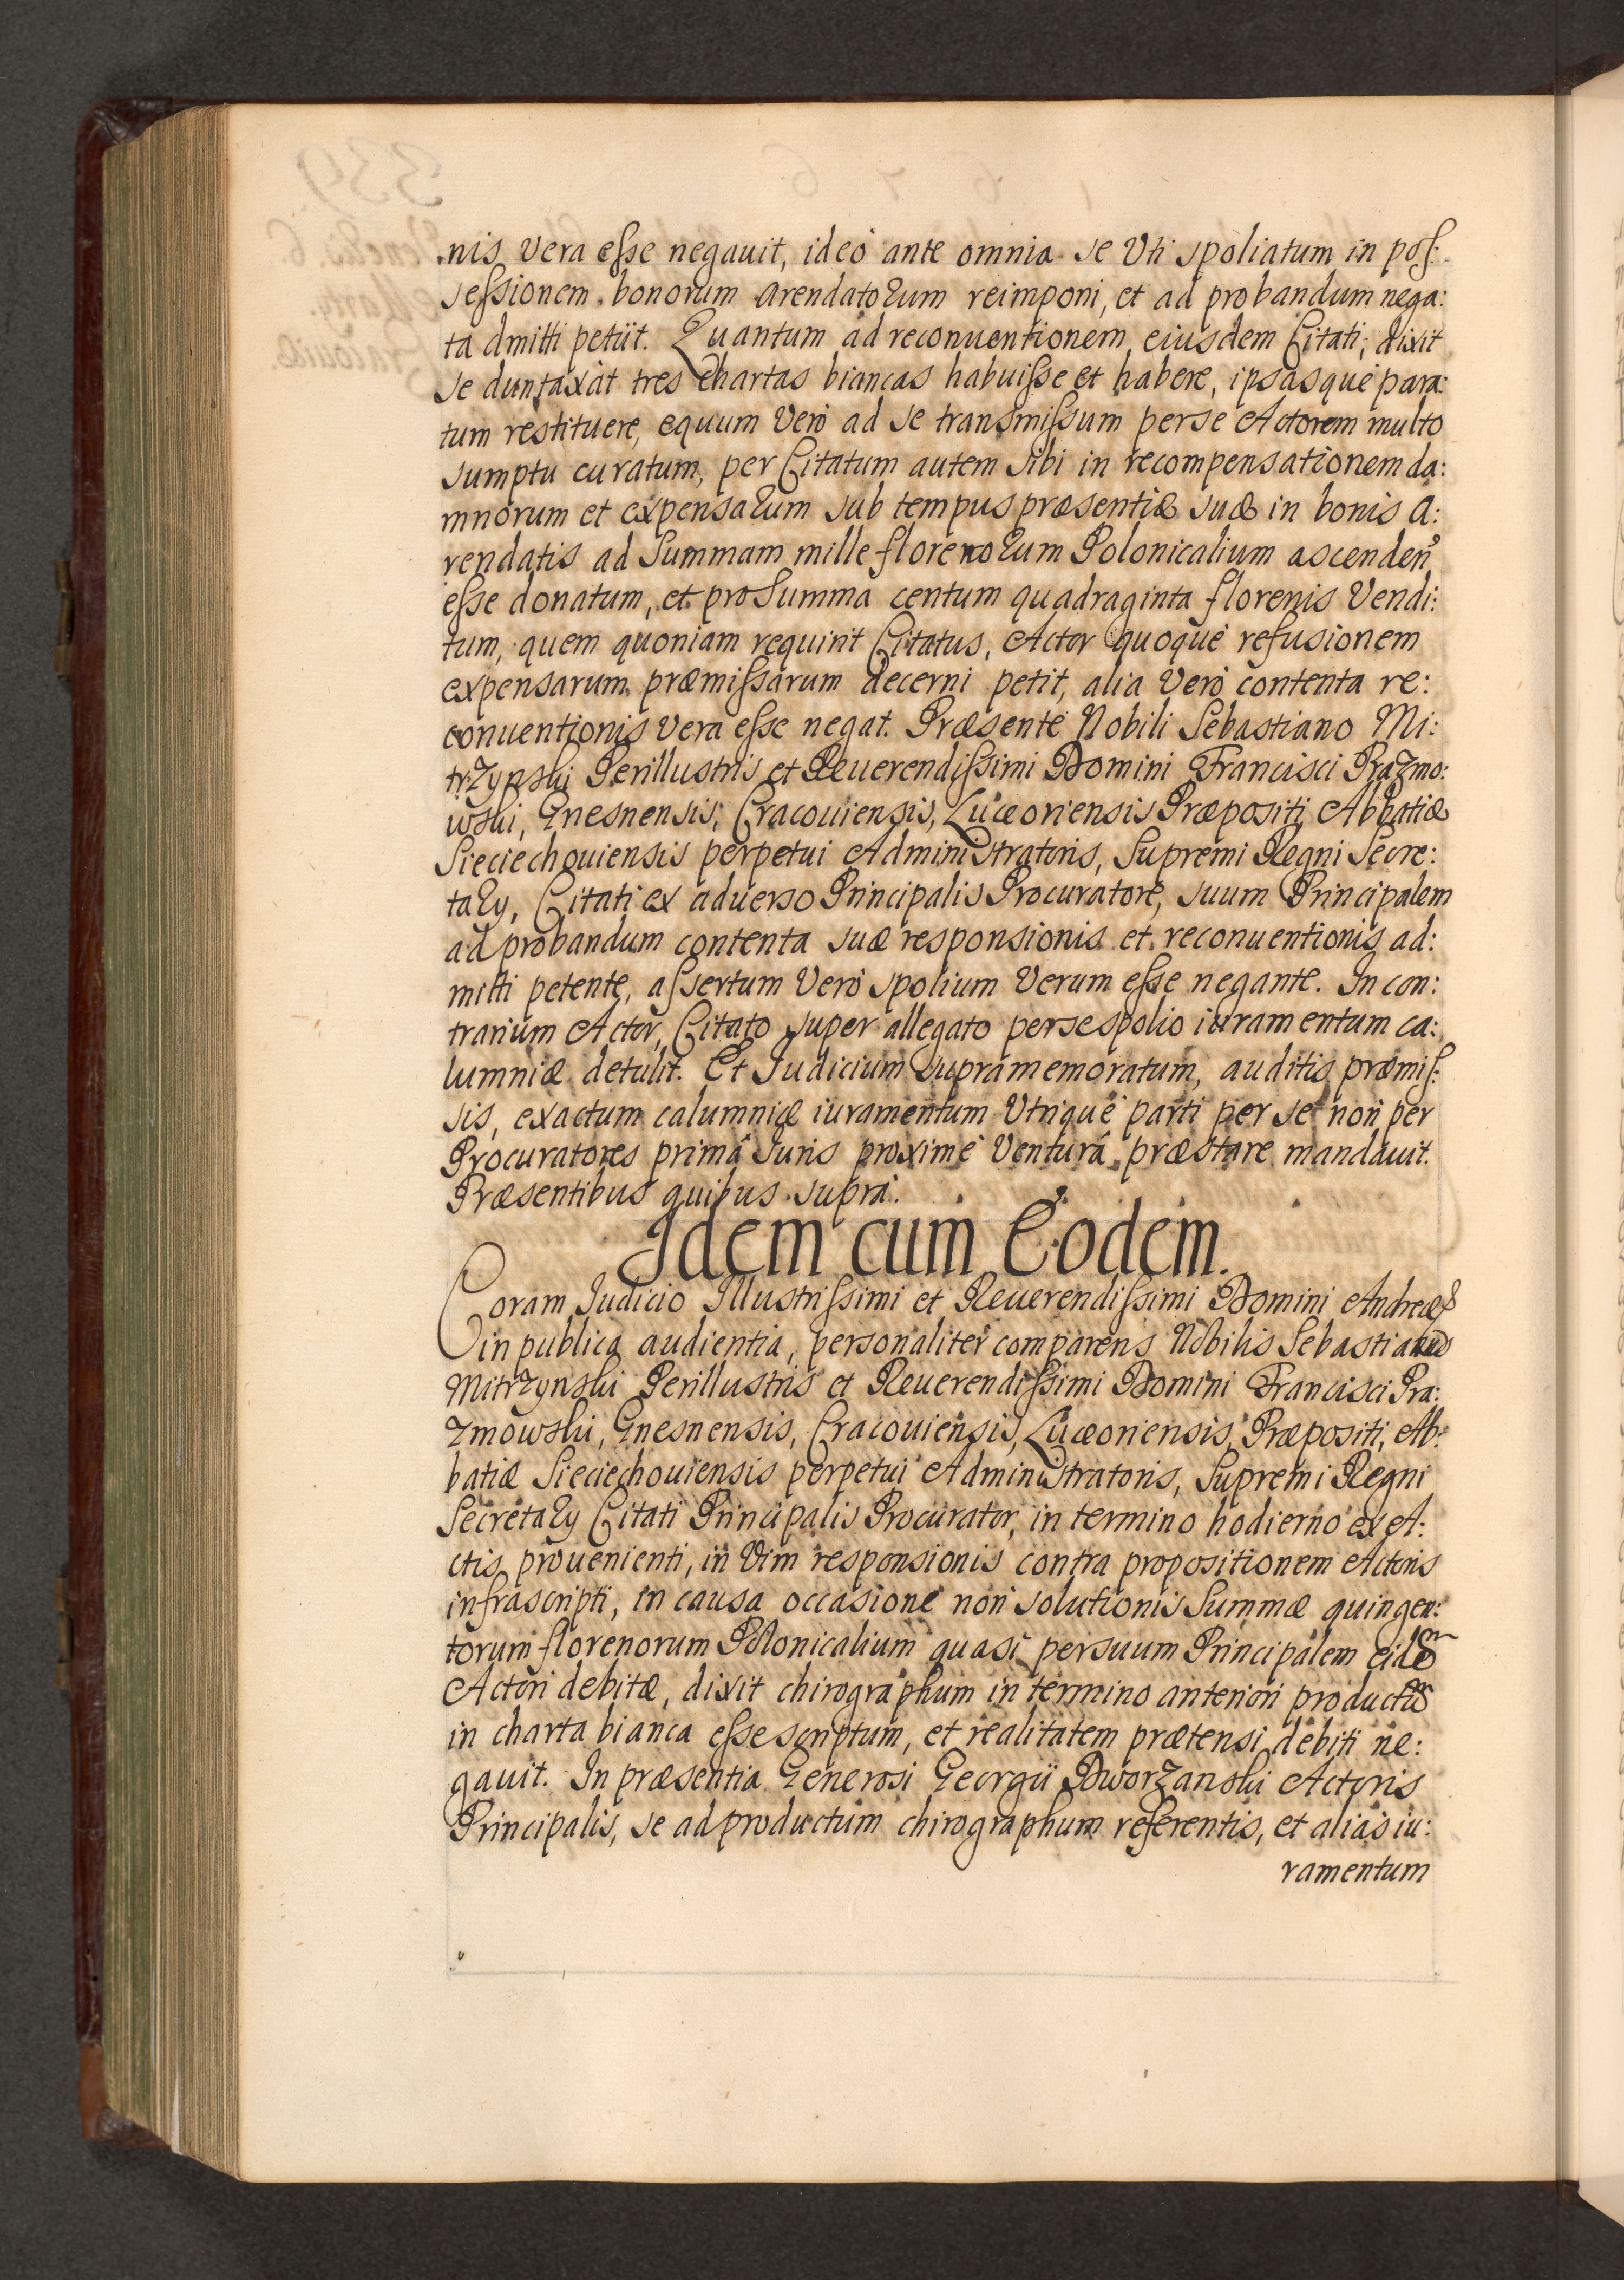 nis vera esse negauit, ideò ante omnia se Vti spoliatum in pos:
sessionem bonorum arendatorum reimponi, et ad probandum nega:
ta dmitti petiit. Quantum ad reconuentionem eiusdem Citati, dixit
se duntaxàt tres chartas biancas habuisse et habere, ipsasque para:
tum restituere, equum Verò ad se transmissum per se Actorem multo
sumptu curatum, per Citatum autem sibi in recompensationem da:
mnorum et expensarum sub tempus præsentiæ suæ in bonis a:
rendatis ad summam mille florenorum Polonicalium ascenden̄
esse donatum, et pro Summa centum quadraginta florenis Vendi:
tum, quem quoniam requirit Citatus, Actor quoque refusionem
expensarum præmissarum decerni petit, alia Verò contenta re:
conuentionis vera esse negat. Præsente Nobili Sebastiano Mi:
trzynski Perillustris et Reuerendissimi Domini Francisci Prazmo:
wski, Gnesnensis, Cracouiensis, Luceoriensis Præpositi, Abbatiæ
Sieciechouiensis perpetui Administratoris, Supremi Regni Secre:
tary, Citati ex aduerso Principalis Procuratore, suum Principalem
ad probandum contenta suæ responsionis et reconuentionis ad:
mitti petente, assertum Verò spolium Verum esse negante. In con:
trarium Actor, Citato super allegato per se spolio iuramentum ca:
lumniæ detulit. Et Judicium supramemoratum, auditis præmis:
sis, exactum calumniæ iuramentum Vtrique parti per se non per
Procuratores primâ Juris proximè Venturâ præstare mandauit.
Præsentibus quibus suprà.
Idem cum Eodem.
Coram Judicio Illustrissimi et Reuerendissimi Domini Andreæ &
in publica audientia, personaliter comparens Nobilis Sebastianus
Mitrzynski Perillustris et Reuerendissimi Domini Francisci Pra:
zmowski, Gnesnensis, Cracouiensis, Luceoriensis, Præpositi, Ab:
batiæ Sieciechouiensis perpetui Administratoris, Supremi Regni
Secretary Citati Principalis Procurator, in termino hodierno ex A:
ctis prouenienti, in Vim responsionis contra propositionem Actoris
infrascripti, in causa occasione non solutionis Summæ quingen:
torum florenorum Polonicalium quasi per suum Principalem eidē
Actori debitæ, dixit chirographum in termino anteriori productū
in charta bianca esse scriptum, et realitatem prætensi debiti ne:
gauit. In præsentia Generosi Georgii Dworzanski Actoris
Principalis, se ad productum chirographum referentis, et aliàs iu:
ramentum